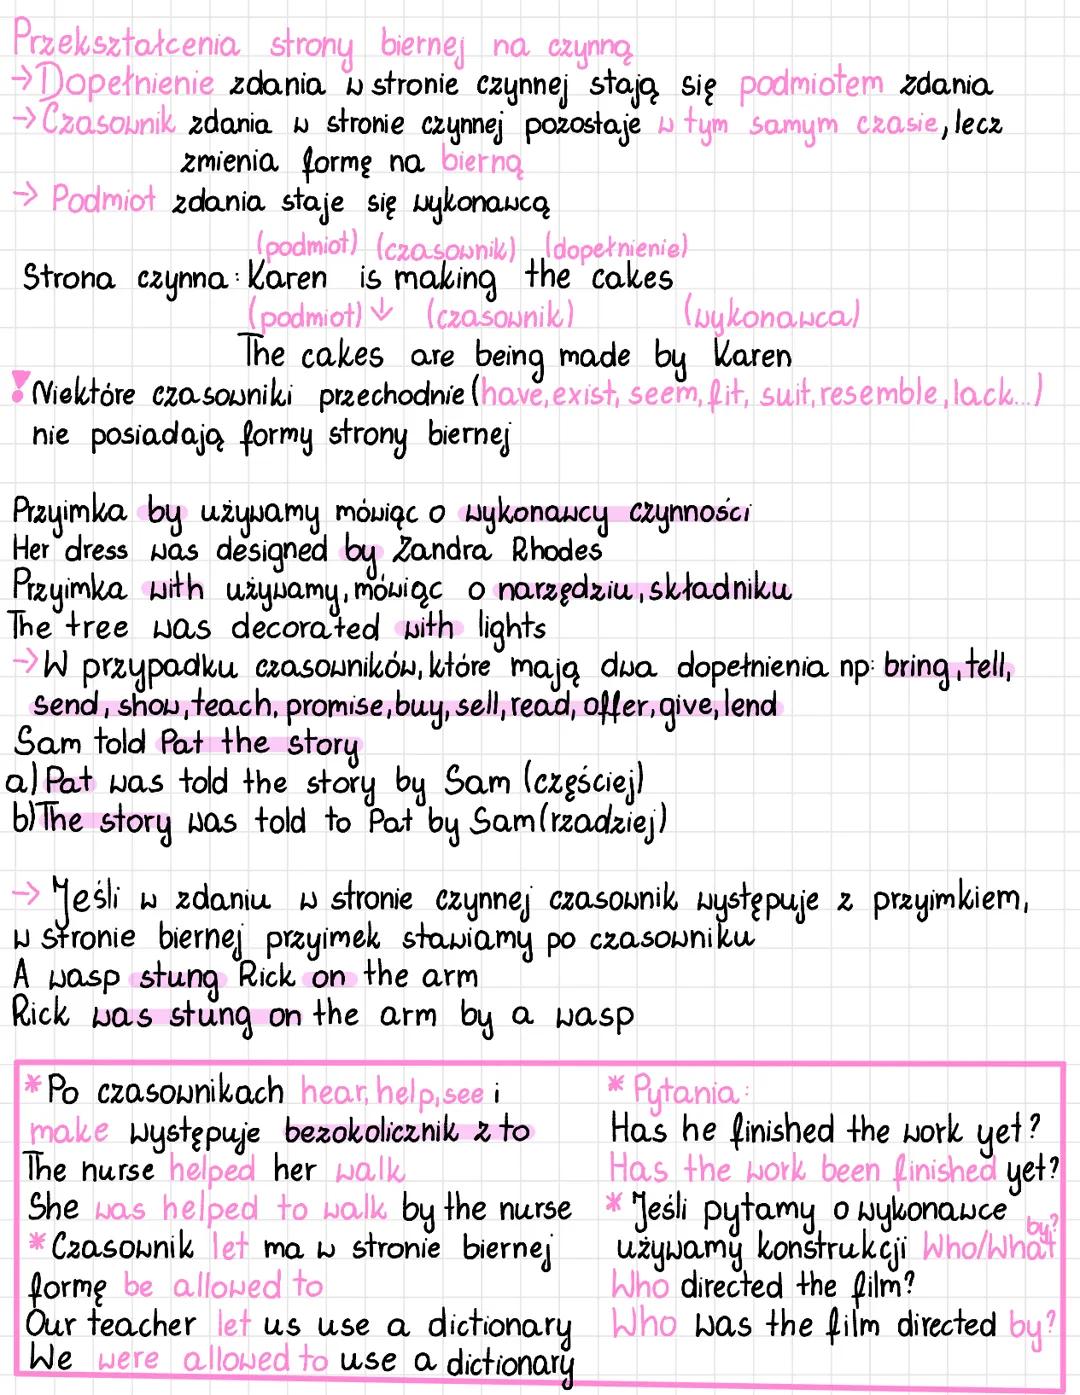 Przekształcenia strony biernej na czynną
→Dopełnienie zdania w stronie czynnej stają się podmiotem zdania
→Czasownik zdania w stronie czynnej pozostaje w tym samym czasie, lecz
zmienia formę na bierną
→ Podmiot zdania staje się wykonawcą
(podmiot) (czasownik) (dopełnienie)
Strona czynna: Karen is making the cakes
(podmiot) ↓ (czasownik) (wykonawca)
The cakes are being made by Karen
! Niektóre czasowniki przechodnie (have, exist, seem, fit, suit, resemble, lack...)
nie posiadają formy strony biernej
Przyimka by używamy mówiąc o wykonawcy czynności
Her dress was designed by Zandra Rhodes
Przyimka with używamy, mówiąc o narzędziu, składniku
The tree was decorated with lights
→W przypadku czasowników, które mają dwa dopełnienia np: bring, tell,
send, show, teach, promise, buy, sell, read, offer, give, lend
Sam told Pat the story
a) Pat was told the story by Sam (częściej)
b) The story was told to Pat by Sam (rzadziej)
→ Jeśli w zdaniu w stronie czynnej czasownik występuje z przyimkiem,
w stronie biernej przyimek stawiamy po czasowniku
A wasp stung Rick on the arm
Rick was stung on the arm by a wasp
* Po czasownikach hear, help, see i
make występuje bezokolicznik z to
The nurse helped her walk
She was helped to walk by the nurse
* Czasownik let ma w stronie biernej
formę be allowed to
Our teacher let us use a dictionary
We were allowed to use a dictionary
* Pytania:
Has he finished the work yet?
Has the work been finished yet?
* Jeśli pytamy o wykonawce
używamy konstrukcji Who/What by?
Who directed the film?
Who was the film directed by?